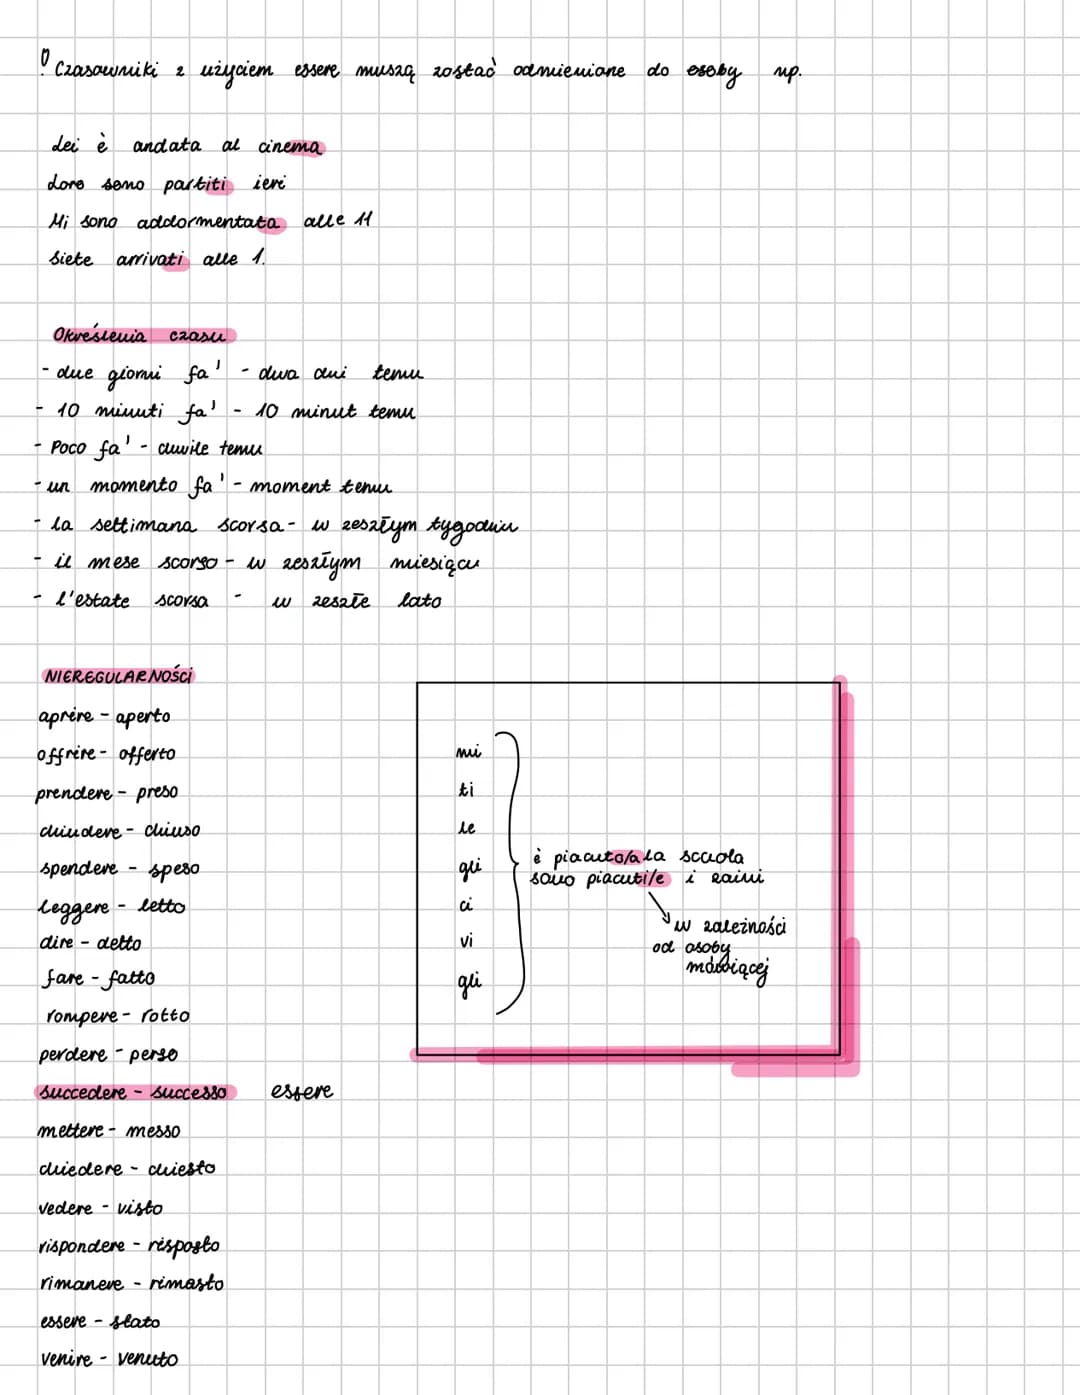 ! Czasowniki z użyciem essere muszą zostać odmieniane do osoby np.
Lei è andata al cinema
Loro sono partiti ieri
Mi sono addormentata alle 11
Siete arrivati alle 1.
Określenia czasu
- due giorni fa' - dwa dni temu
- 10 minuti fa' - 10 minut temu
- Poco fa' - chwile temu
- un momento fa' - moment temu
- la settimana scorsa - w zeszłym tygodniu
- il mese scorso - w zeszłym miesiącu
- l'estate scorsa - w zeszłe lato
NIEREGULARNOŚCI
aprire - aperto
offrire - offerto
prendere - preso
chiudere - chiuso
spendere - speso
leggere - letto
dire - detto
fare - fatto
rompere - rotto
perdere - perso
succedere - successo essere
mettere - messo
chiedere - chiesto
vedere - visto
rispondere - risposto
rimanere - rimasto
essere - stato
venire - venuto
mi
ti
le
gli
ci
vi
gli
è piacuto/a la scuola
sono piacuti/e i zaini
w zależności
od osoby
mówiącej